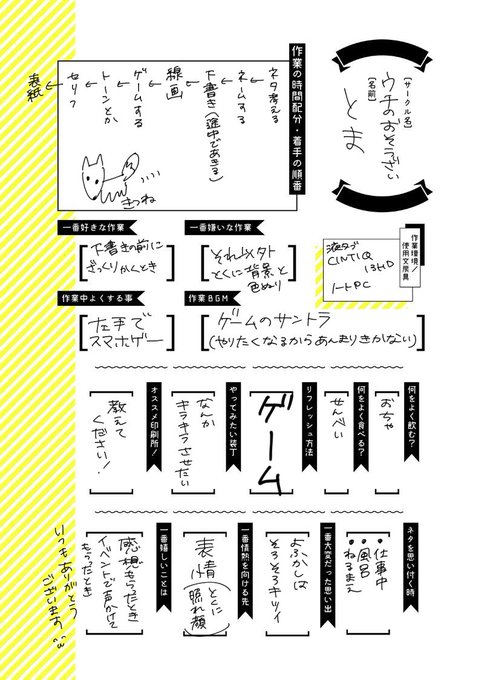 [サークル名]
ウチのおそうざい
[名前]
とま
作業の時間配分・着手の順番
ネタ考える
↓
ネームする
↓
下書き(途中であきる)
↓
ゲームする
線画
↓
トーンとか
↓
セリフ
↓
表紙
きつね
作業環境/使用文房具
液タブ
CINTIQ
13HD
ノートPC
一番嫌いな作業
それ以外
とくに背景と
色ぬり
一番好きな作業
下書きの前に
ざっくりかくとき
作業BGM
ゲームのサントラ
(やりたくなるからあんまりきかない)
作業中よくする事
左手で
スマホゲー
何をよく飲む?
おちゃ
何をよく食べる?
せんべい
リフレッシュ方法
ゲーム
やってみたい装丁
なんか
キラキラさせたい
オススメ印刷所!
教えて
ください!
ネタを思い付く時
・仕事中
・風呂
・ねるまえ
一番大変だった思い出
よふかしは
そろそろキツイ
一番情熱を向ける先
表情
(とくに照れ顔)
一番嬉しいことは
感想もらったとき
イベントで声かけて
もらったとき
いつもありがとう
ございます